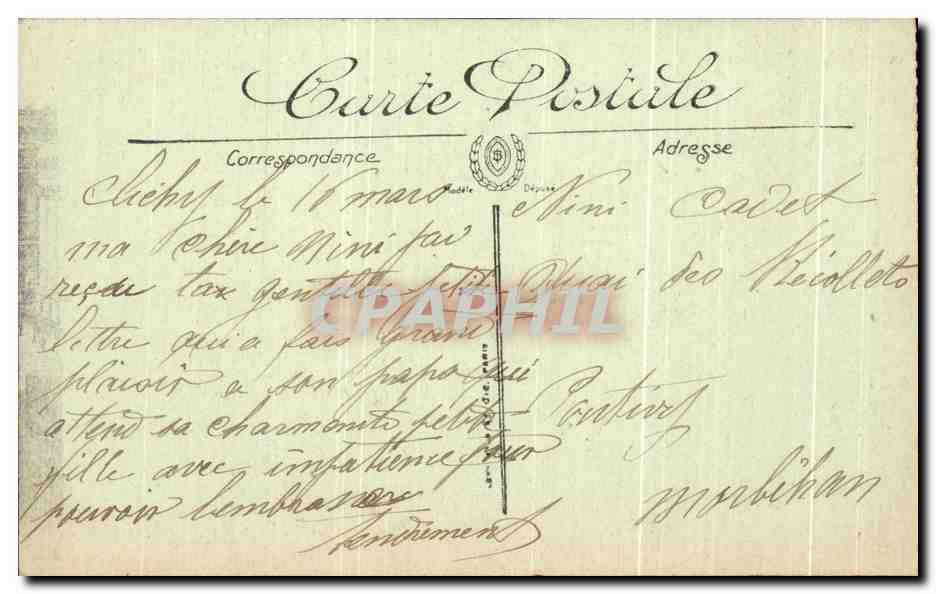 Carte Postale
Correspondance
Adresse
Modèle Déposé
Clichy le 16 mars
ma chère Nini j'ai
reçu ta gentille petite
lettre qui a fais grand
plaisir a son papa qui
attend sa charmante petite
fille avec impatience pour
pouvoir l'embrasser
tendrement
Nini Cadet
Quai des Récollets
Pontivy
Morbihan
CPAPHIL
PARIS